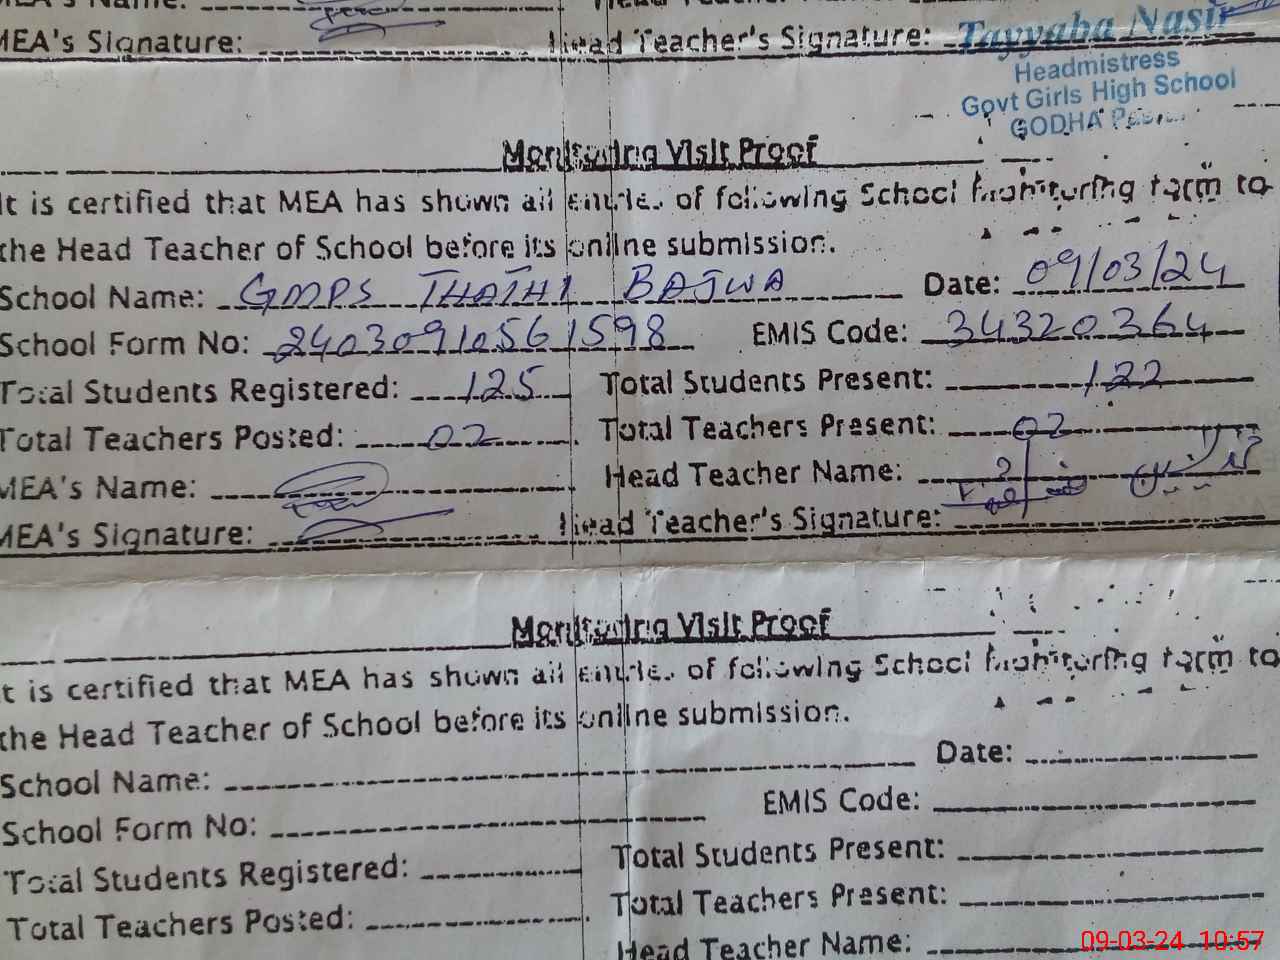 MEA's Signature: Head Teacher's Signature: Tayyaba Nasir
Headmistress
Govt Girls High School
GODHA
Monitoring Visit Proof
It is certified that MEA has shown all entries of following School Monitoring form to
the Head Teacher of School before its online submission.
School Name: GMPS THATHI BAJWA Date: 09/03/24
School Form No: 24030910561598 EMIS Code: 34320364
Total Students Registered: 125 Total Students Present: 122
Total Teachers Posted: 02 Total Teachers Present: 02
MEA's Name: Head Teacher Name:
MEA's Signature: Head Teacher's Signature:
Monitoring Visit Proof
It is certified that MEA has shown all entries of following School Monitoring form to
the Head Teacher of School before its online submission.
School Name: Date:
School Form No: EMIS Code:
Total Students Registered: Total Students Present:
Total Teachers Posted: Total Teachers Present:
Head Teacher Name:
09-03-24 10:57